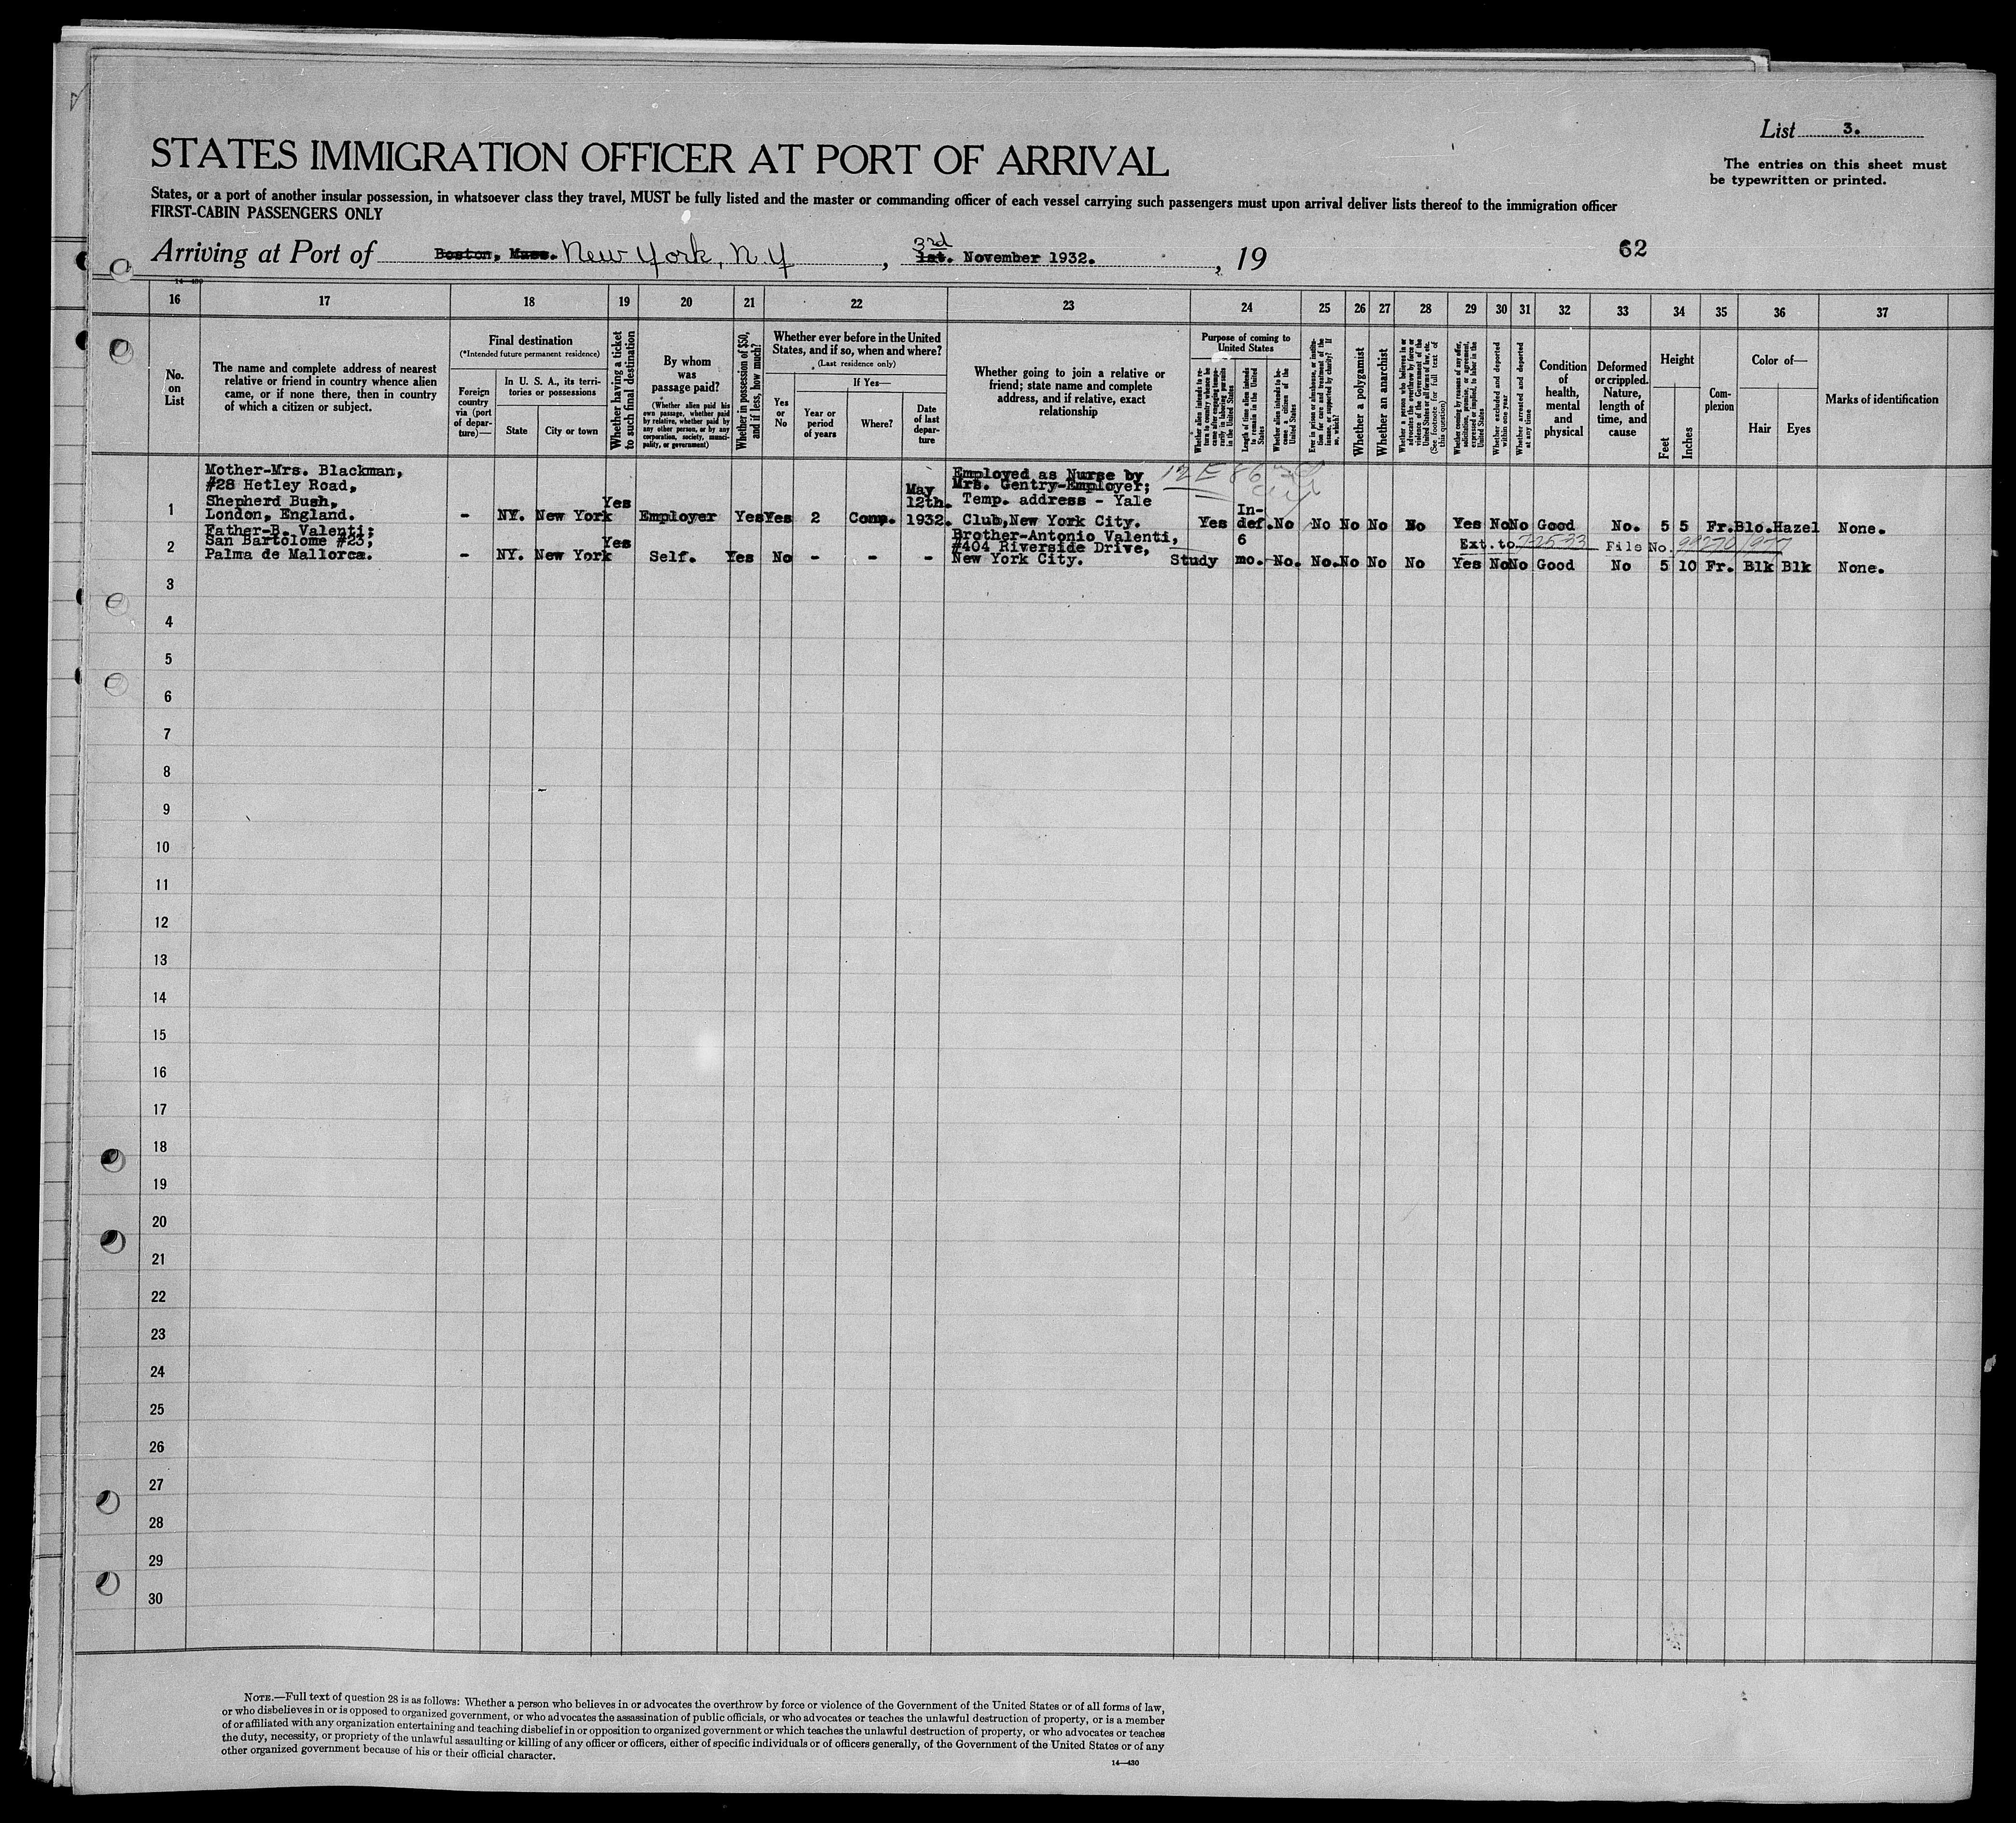 List 3.
The entries on this sheet must
be typewritten or printed.
STATES IMMIGRATION OFFICER AT PORT OF ARRIVAL
States, or a port of another insular possession, in whatsoever class they travel, MUST be fully listed and the master or commanding officer of each vessel carrying such passengers must upon arrival deliver lists thereof to the immigration officer
FIRST-CABIN PASSENGERS ONLY
Arriving at Port of Boston, Mass. New York, N.Y , 3rd 1st. November 1932. , 19
62
14—430
16 17 18 19 20 21 22 23 24 25 26 27 28 29 30 31 32 33 34 35 36 37
No. on List
The name and complete address of nearest
relative or friend in country whence alien
came, or if none there, then in country
of which a citizen or subject.
Final destination
(*Intended future permanent residence)
Foreign country via (port of departure)—
In U. S. A., its territories or possessions
State
City or town
Whether having a ticket
to such final destination
By whom
was
passage paid?
(Whether alien paid his
own passage, whether paid
by relative, whether paid by
any other person, or by any
corporation, society, munici-
pality, or government)
Whether in possession of $50,
and if less, how much?
Whether ever before in the United
States, and if so, when and where?
(Last residence only)
Yes or No
If Yes—
Year or period of years
Where?
Date of last depar-
ture
Whether going to join a relative or
friend; state name and complete
address, and if relative, exact
relationship
Purpose of coming to
United States
Whether alien intends to re-
turn to country whence he
came after engaging tempo-
rarily in laboring pursuits
in the United States
Length of time alien intends
to remain in the United
States
Whether alien intends to be-
come a citizen of the
United States
Ever in prison or almshouse, or institu-
tion for care and treatment of the
insane, or supported by charity? If
so, which?
Whether a polygamist
Whether an anarchist
Whether a person who believes in or
advocates the overthrow by force or
violence of the Government of the
United States or all forms of law, etc.
(See footnote for full text of
this question)
Whether coming by reason of any offer,
solicitation, promise, or agreement,
expressed or implied, to labor in the
United States
Whether excluded and deported
within one year
Whether arrested and deported
at any time
Condition
of
health,
mental
and
physical
Deformed
or crippled.
Nature,
length of
time, and
cause
Height
Feet
Inches
Com-
plexion
Color of—
Hair
Eyes
Marks of identification
Mother-Mrs. Blackman,
#28 Hetley Road,
Shepherd Bush,
London, England.
1 - NY. New York Yes Employer Yes Yes 2 Conn. May 12th. 1932.
Employed as Nurse by
Mrs. Gentry-Employer;
Temp. address - Yale
Club, New York City.
12 E 86
Yes In-
def. No No No No No Yes No No Good No. 5 5 Fr. Blo. Hazel None.
Father-B. Valenti;
San Bartolome #23,
Palma de Mallorca.
2 - NY. New York Yes Self. Yes No - - -
Brother-Antonio Valenti,
#404 Riverside Drive,
New York City.
Ext. to 7-25-33 File No.
Study 6
mo. No. No. No No No Yes No No Good No 5 10 Fr. Blk Blk None.
3
4
5
6
7
8
9
10
11
12
13
14
15
16
17
18
19
20
21
22
23
24
25
26
27
28
29
30
NOTE.—Full text of question 28 is as follows: Whether a person who believes in or advocates the overthrow by force or violence of the Government of the United States or of all forms of law,
or who disbelieves in or is opposed to organized government, or who advocates the assassination of public officials, or who advocates or teaches the unlawful destruction of property, or is a member
of or affiliated with any organization entertaining and teaching disbelief in or opposition to organized government or which teaches the unlawful destruction of property, or who advocates or teaches
the duty, necessity, or propriety of the unlawful assaulting or killing of any officer or officers, either of specific individuals or of officers generally, of the Government of the United States or of any
other organized government because of his or their official character.
14—430